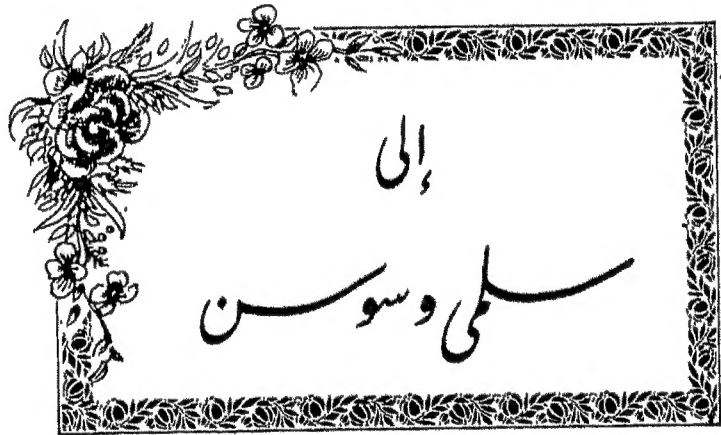 إلى
سلمى و سوسن